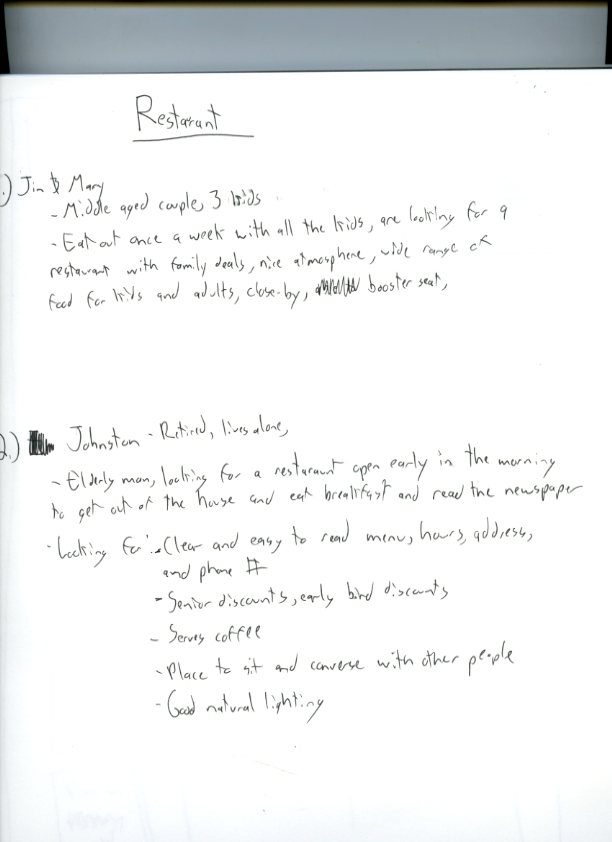 Restarant
1.) Jim & Mary
- Middle aged couple, 3 kids
- Eat out once a week with all the kids, are looking for a
restaurant with family deals, nice atmosphere, wide range of
food for kids and adults, close-by, booster seat,
2.) Johnston - Retired, lives alone,
- Elderly man, looking for a restaraunt open early in the morning
to get out of the house and eat breakfast and read the newspaper
- Looking for: - Clear and easy to read menu, hours, address,
and phone #
- Senior discounts, early bird discounts
- Serves coffee
- Place to sit and converse with other people
- Good natural lighting